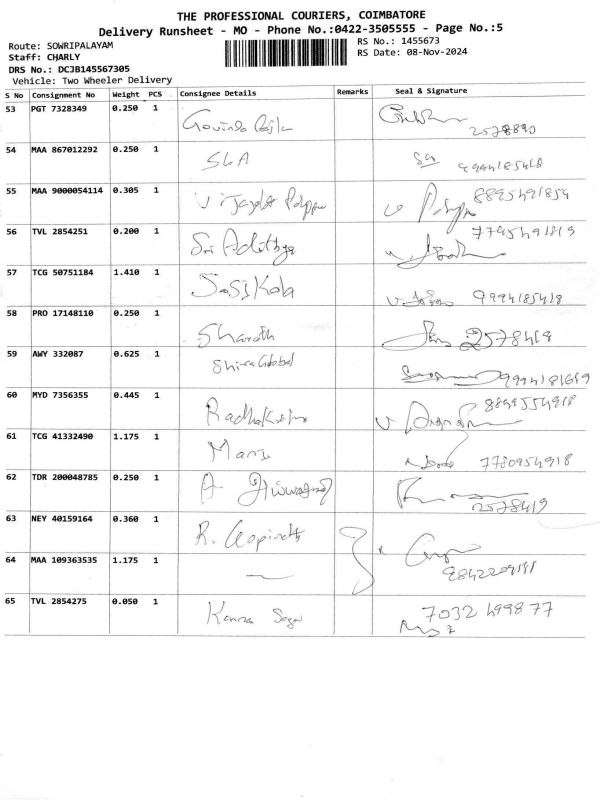 THE PROFESSIONAL COURIERS, COIMBATORE
Delivery Runsheet - MO - Phone No.:0422-3505555 - Page No.:5
Route: SOWRIPALAYAM
RS No.: 1455673
Staff: CHARLY
RS Date: 08-Nov-2024
DRS No.: DCJB145567305
Vehicle: Two Wheeler Delivery
S No Consignment No Weight PCS Consignee Details Remarks Seal & Signature
53 PGT 7328349 0.250 1 Govinda 2578890
54 MAA 867012292 0.250 1 SLA 9994185418
55 MAA 9000054114 0.305 1 8895491854
56 TVL 2854251 0.200 1 Sri Adithya 7795491819
57 TCG 50751184 1.410 1 SasiKala 9994185418
58 PRO 17148110 0.250 1 Sharath 2578418
59 AWY 332087 0.625 1 Shiva Global 9994181619
60 MYD 7356355 0.445 1 8899554918
61 TCG 41332490 1.175 1 7780954918
62 TDR 200048785 0.250 1 A 2578419
63 NEY 40159164 0.360 1 R. Gopinath
64 MAA 109363535 1.175 1 9842209191
65 TVL 2854275 0.050 1 Kanna 7032499877